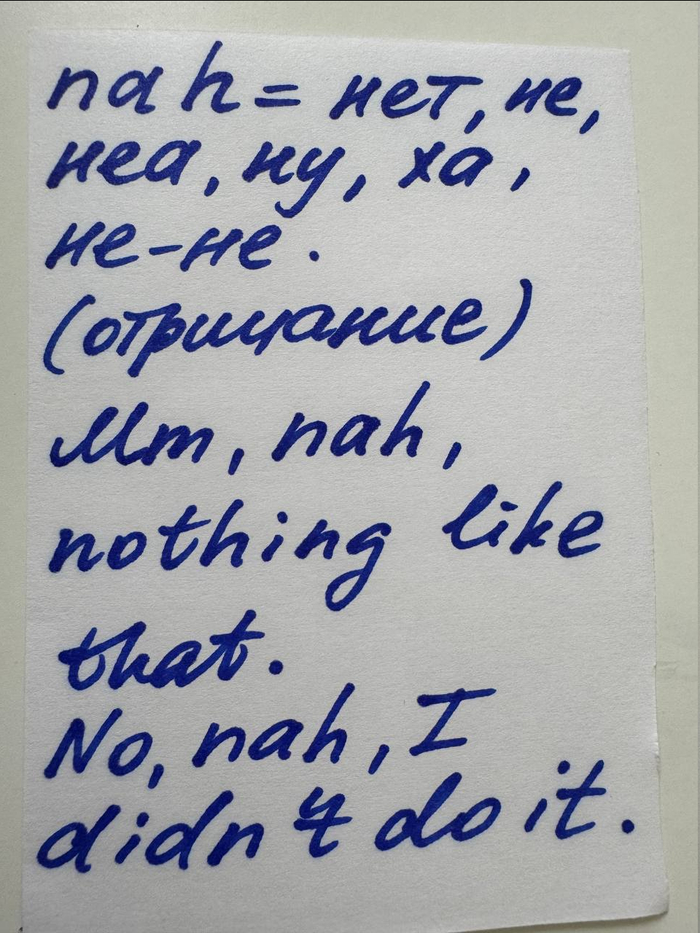 nah = нет, не,
неа, ну, ха,
не-не.
(отрицание)
Mm, nah,
nothing like
that.
No, nah, I
didn't do it.